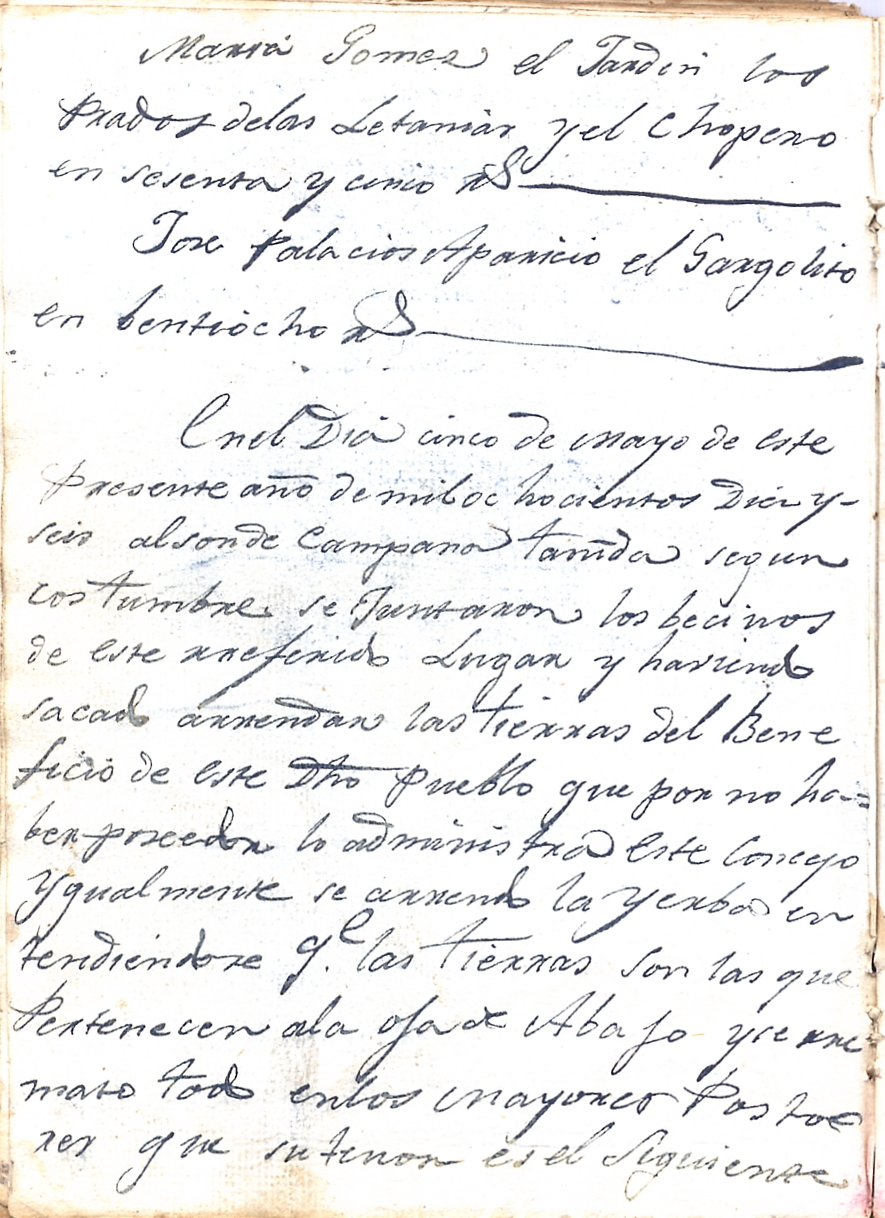 Maria Gomez el Jardin los
Prados delas Letanias y el Chopero
en sesenta y cinco rs
Jose Palacios Aparicio el Gargolito
en bentiocho rs
En el Dia cinco de mayo de este
Presente año de mil ochocientos Diez y-
seis al son de Campana tanida segun
costumbre se Juntaron los becinos
de este rreferido Lugar y haviendo
sacado arrendar las tierras del Bene
ficio de este Dho Pueblo que por no ha-
ber poseedor lo administra este Concejo
Ygualmente se arrendo la Yerba en
tendiendose qe. las tierras son las que
Pertenecen ala oja de Abajo y se rre
mato todo enlos mayores Posto
res que su tenor es el Siguiente